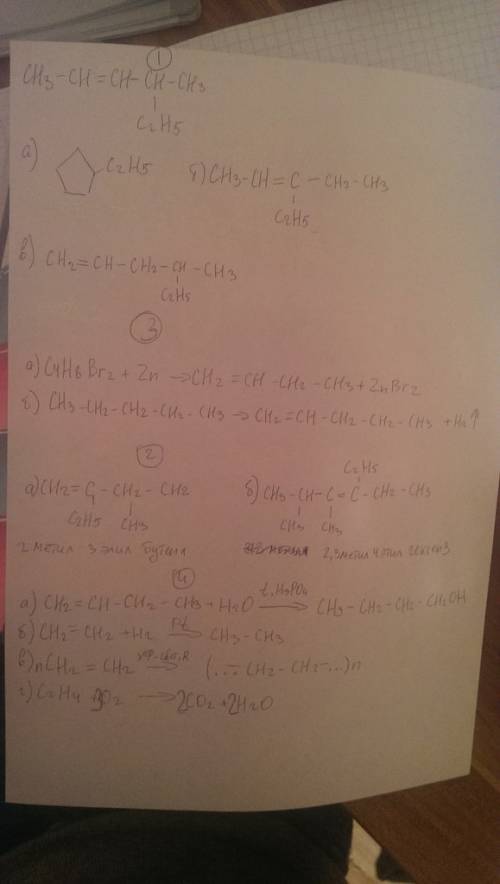 1
CH3-CH=CH-CH-CH3
C2H5
а) C2H5 б) CH3-CH=C-CH2-CH3
C2H5
в) CH2=CH-CH2-CH-CH3
C2H5
3
а) C4H8Br2+Zn→CH2=CH-CH2-CH3+ZnBr2
б) CH3-CH2-CH2-CH2-CH3→CH2=CH-CH2-CH2-CH3+H2↑
2
C2H5
а) CH2=C-CH2-CH2 б) CH3-CH-C=C-CH2-CH3
C2H5 CH3 CH3 CH3
2 метил 3 этил бутен1 2,3метил 4этил гексен3
4
а) CH2=CH-CH2-CH3+H2O t,H3PO4→ CH3-CH2-CH2-CH2OH
б) CH2=CH2+H2 Pt→ CH3-CH3
в) nCH2=CH2 → (...-CH2-CH2-...)n
г) C2H4+3O2→2CO2+2H2O